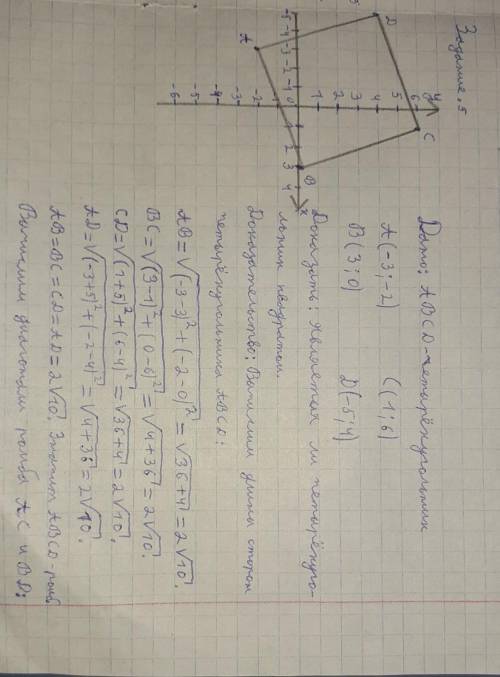 Задание. 5
Дано: ABCD - четырёхугольник
A(-3;-2) C(1;6)
B(3;0) D(-5;4)
Доказать: является ли четырёхуго-
льник квадратом.
Доказательство: Вычислим длины сторон
четырёхугольника ABCD:
AB=√(-3-3)²+(-2-0)²=√36+4=2√10.
BC=√(3-1)²+(0-6)²=√4+36=2√10.
CD=√(1+5)²+(6-4)²=√36+4=2√10.
AD=√(-3+5)²+(-2-4)²=√4+36=2√10.
AB=BC=CD=AD=2√10. Значит ABCD-ромб
Вычислим диагонали ромба AC и BD:
y
C
D
6
5
4
3
2
1
-5 -4 -3 -2 -1 0 1 2 3 4 x
A
B
-1
-2
-3
-4
-5
-6